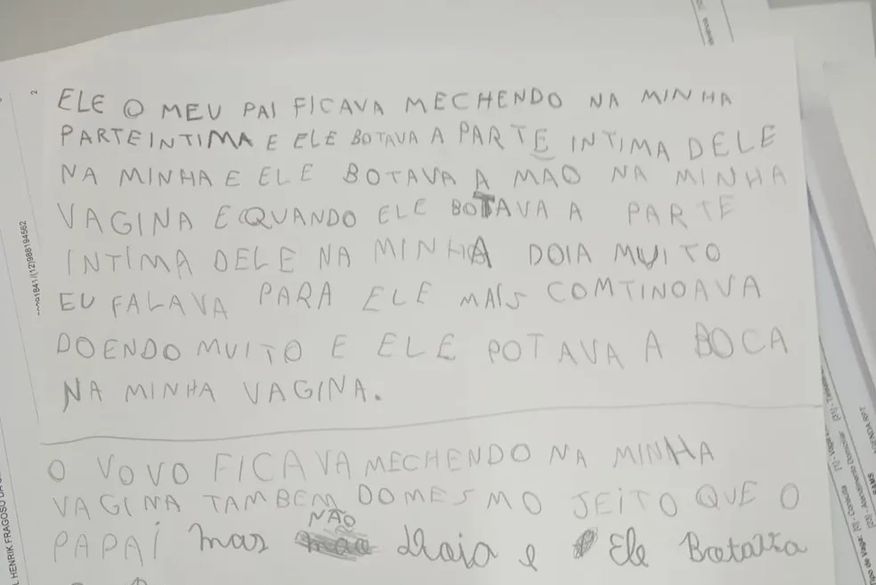 ELE O MEU PAI FICAVA MECHENDO NA MINHA
PARTE INTIMA E ELE BOTAVA A PARTE INTIMA DELE
NA MINHA E ELE BOTAVA A MAO NA MINHA
VAGINA E QUANDO ELE BOTAVA A PARTE
INTIMA DELE NA MINHA DOIA MUITO
EU FALAVA PARA ELE MAIS COMTINOAVA
DOENDO MUITO E ELE POTAVA A BOCA
NA MINHA VAGINA.
O VOVO FICAVA MECHENDO NA MINHA
VAGINA TAMBEM DO MESMO JEITO QUE O
NÃO
PAPAI mas e Ele